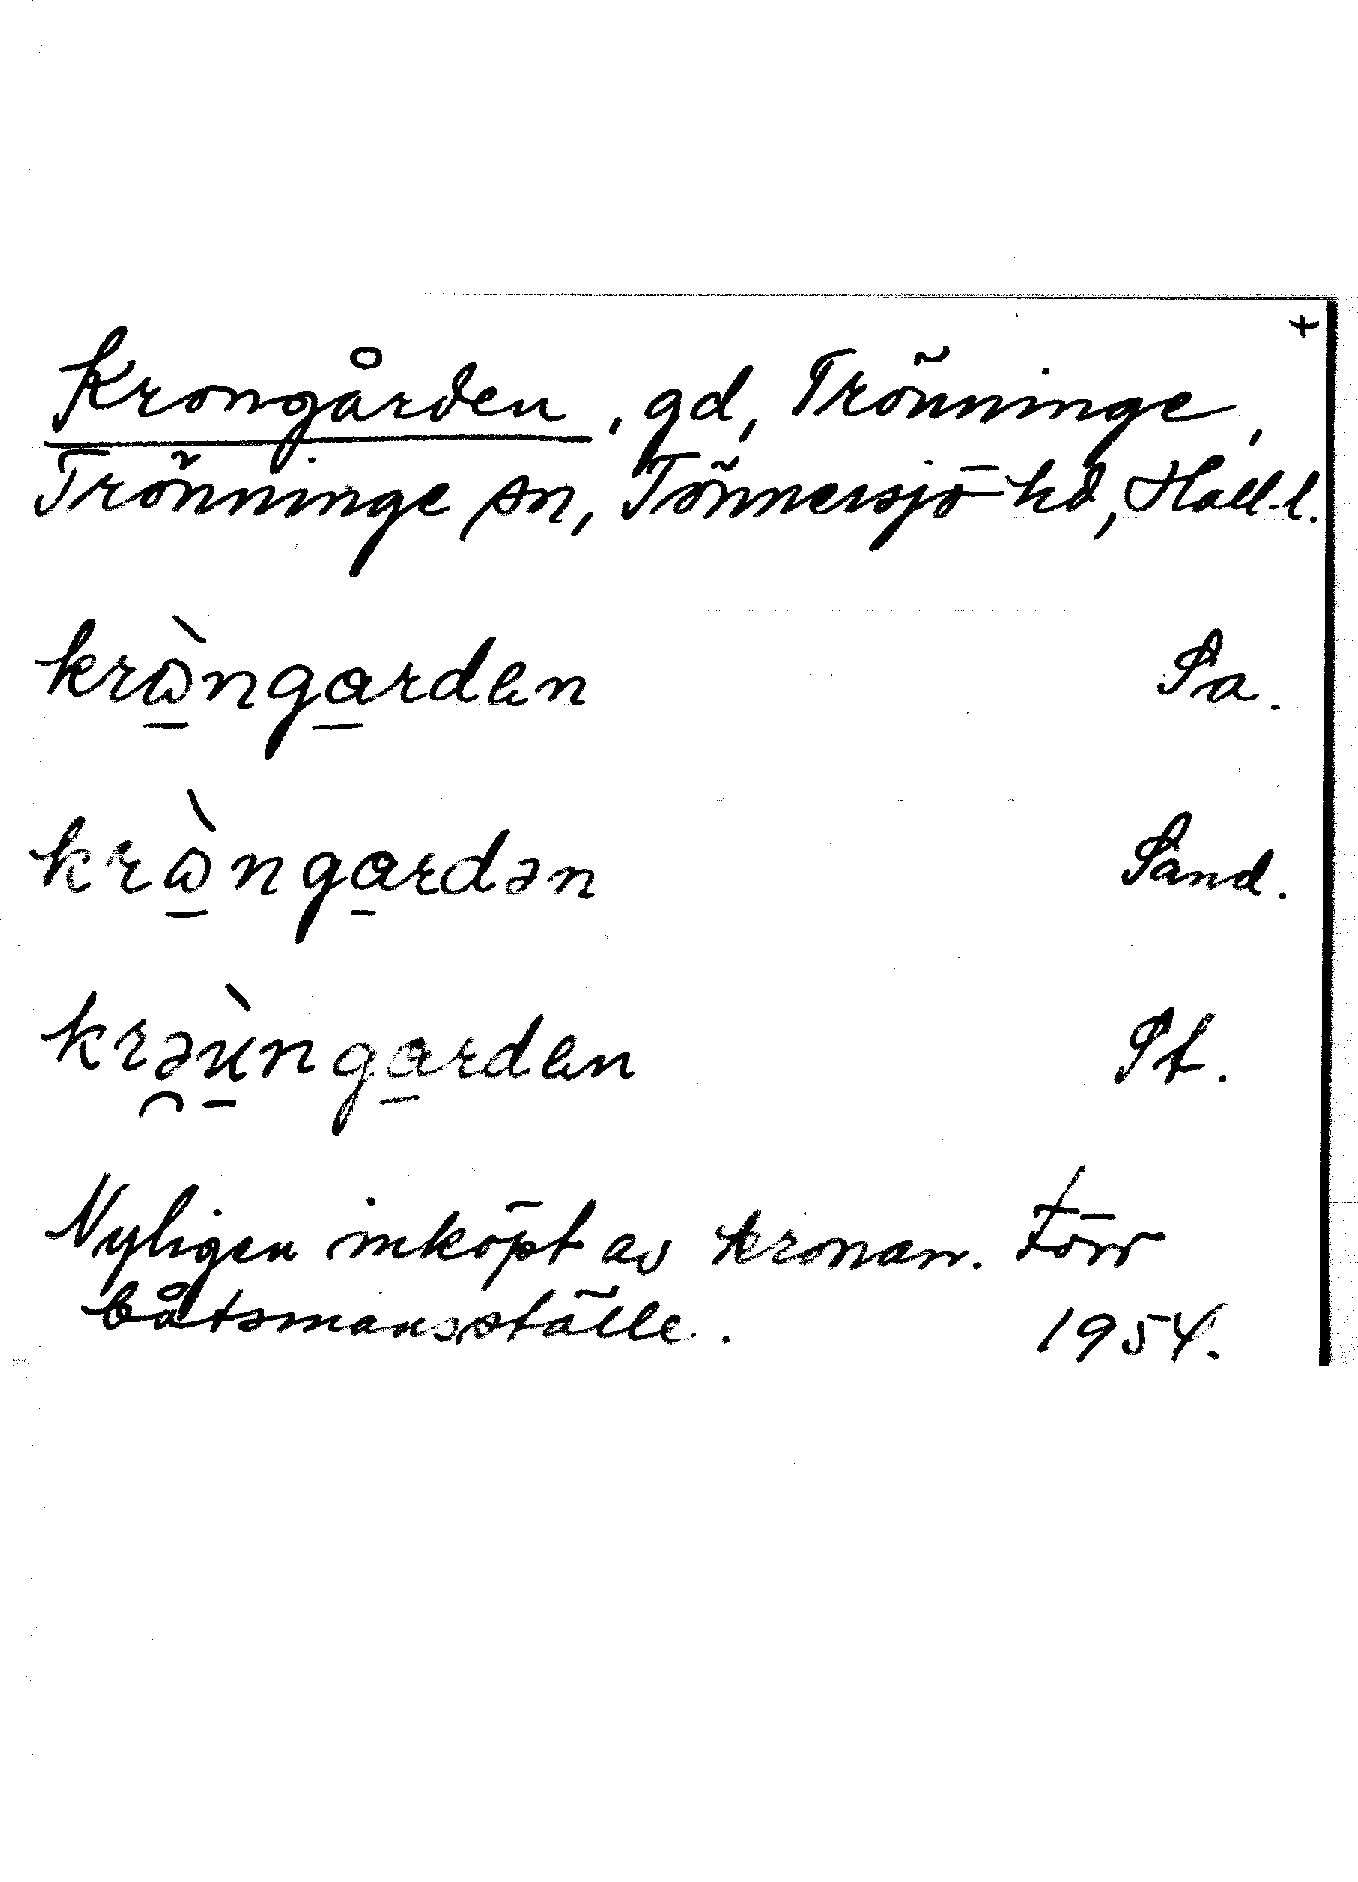 +
Krongården, gd, Trönninge,
Trönninge sn, Tönnersjö hd, Hall.l.
krɷ̠̀nga̠rdɐn Sa.
krɷ̠̀nga̠rdən Sand.
krə̯ù̠nga̠rdɐn St.
Nyligen inköpt av kronan. Förr
båtsmansställe. 1954.